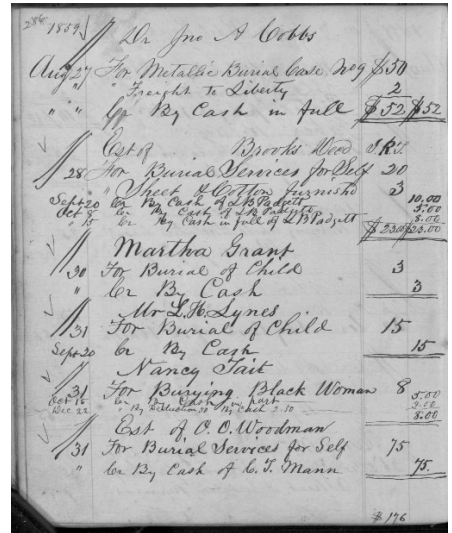 286 1859 Dr Jno A Cobbs
Aug 27 For Metallic Burial Case No 9 $50
" Freight to Liberty 2
" " Cr By Cash in full $52 $52
Est of Brooks Deed
28 For Burial Services for Self 20
" Sheet & Cotton furnishd 3
Sept 20 Cr By Cash of L B Padgett 10.00
Oct 8 Cr By Cash of L B Padgett 5.00
" 15 Cr By Cash in full of L B Padgett 8.00
$23.00 $23.00
Martha Grant
30 For Burial of Child 3
" Cr By Cash 3
Mr L. H. Lynes
31 For Burial of Child 15
Sept 20 Cr By Cash 15
Nancy Tait
31 For Burying Black Woman 8
Oct 15 Cr By Cash in part 5.00
Dec 22 " By Deduction 50 By Cash 2.50
8.00
Est of O. O. Woodman
31 For Burial Services for Self 75
" Cr By Cash of C. T. Mann 75.
$176